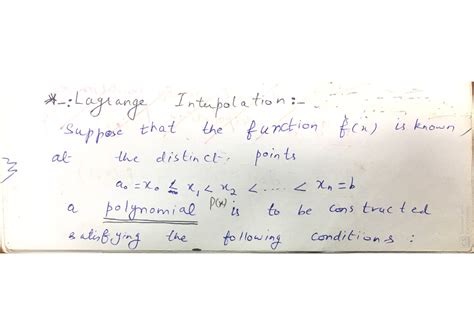 *-: Lagrange Interpolation :-
Suppose that the function f(x) is known
at the distinct points
a₀ = x₀ ≤ x₁ < x₂ < .... < xₙ = b
a polynomial P(x) is to be constructed
satisfying the following conditions :